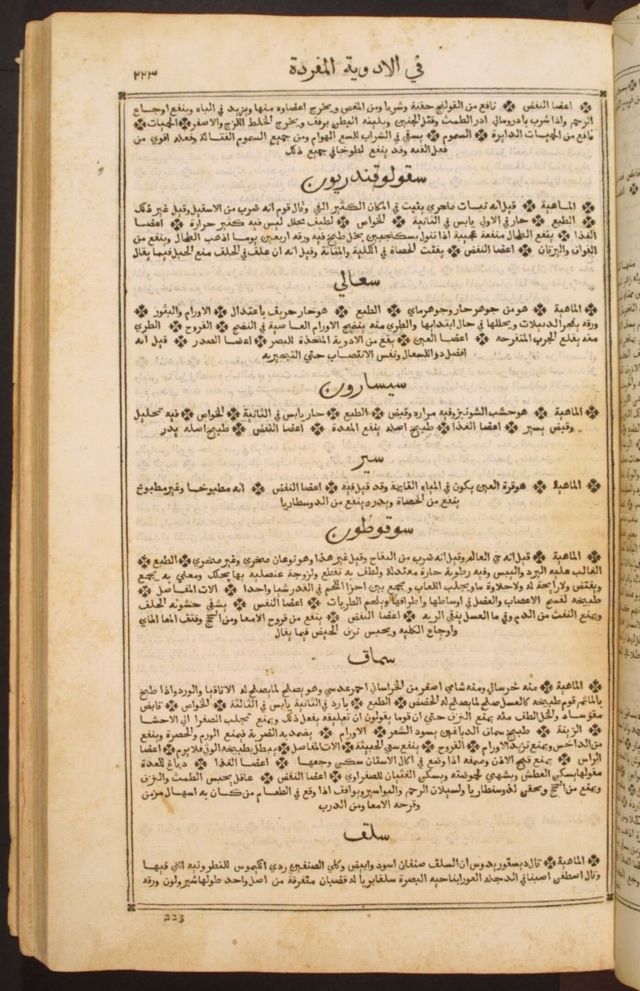 في الادوية المفردة ٢٢٣
❖ اعضا النفض ❖ نافع من القولنج حقنة وشربا ومن المغص ويخرج اعضاوه منها ويزيد في الباه وينفع اوجاع
الرحم واذا شرب بادرومالي ادر الطمث وقتل الجنين ويلينه البطن برفق ويخرج الخلط اللزج والاصفر ❖ الحميات ❖
نافع من الحميات الدايرة ❖ السموم ❖ يسقي في الشراب للسع الهوام ومن جميع السموم القتالة وفعله اقوي من
فعل القفه وقد ينفع لطوخا في جميع ذلك
سقولوقندريون
❖ الماهية ❖ قيل انه نبات صخري ينبت في المكان الكثير الفي وقال قوم انه ضرب من الاسقيل وقيل غير ذلك
❖ الطبع ❖ حار في الاولي يابس في الثانية ❖ الخواص ❖ لطيف محلل ليس فيه كثير حرارة ❖ اعضا
الغذا ❖ ينفع الطحال منفعة عجيبة اذا تنول بسكنجبين بخل طبخ فيه ورقه اربعين يوما اذهب الطحال وينفع من
الفواق واليرقان ❖ اعضا النفض ❖ يفتت الحصاة في الكلية والمثانة وقيل انه ان علق في الحلف منع الحبل فيما يقال
سعالي
❖ الماهية ❖ هو من جوهر حار وجوهر ماي ❖ الطبع ❖ هو حار حريف باعتدال ❖ الاورام والبثور ❖
ورقه يفجر الدبيلات ويحللها في حال ابتدايها والطري منه ينضج الاورام العاصية في النضج ❖ القروح ❖ الطري
منه يقلع الجرب المتقرحه ❖ اعضا العين ❖ يقع من الادوية المتخذة للبصر ❖ اعضا الصدر ❖ قيل انه
افضل دوا للسعال ونفس الانتصاب حتي التبخير به
سيسارون
❖ الماهية ❖ هو خشب الشونيز وفيه مراره وقبض ❖ الطبع ❖ حار يابس في الثانية ❖ الخواص ❖ فيه تحليل
وقبض يسير ❖ اعضا الغذا ❖ طبيخ اصله ينفع المعدة ❖ اعضا النفض ❖ طبيخ اصله يدر
سير
❖ الماهية ❖ هو قرة العين يكون في المياه القايمة وقد قيل فيه ❖ اعضا النفض ❖ انه مطبوخا وغير مطبوخ
ينفع من الحصاة ويدر وينفع من الدوسنطاريا
سوقوطون
❖ الماهية ❖ قيل انه حي العالم وقيل انه ضرب من اليفاح وقيل غير هذا وهو نوعان صخري وغير صخري ❖ الطبع ❖
الغالب عليه البرد واليبس وفيه رطوبة حارة معتدلة ولطف به تقطع ولزوجة عنصلية بها يحكك ومعني به يجمع
ويقبض ولا رايحة له ولا حلاوة ما ويجلب اللعاب ويجمع بين اجزا اللحم في القدر شيا واحدا ❖ الات المفاصل ❖
طبيخه لفسخ الاعصاب والعضل في اوساطها واطرافها ويلصم الطريات ❖ اعضا النفس ❖ يشفي خشونه الحلف
ويمنع النفث من الدم وفي ما العسل ينقي الريه ❖ اعضا النفض ❖ ينفع من قروح الامعا ومن السحج وفتق المعا الماي
واوجاع الكليه ويحبس نزف الحيض فيما يقال
سماق
❖ الماهية ❖ منه خرساني ومنه شامي اصغر من الخراساني احمر عدسي وهو يصلح لما يصلح له الاقاقيا والورد واذا طبخ
بالما ثم قوم طبيخه كالعسل صلح لما يصلح له الحضض ❖ الطبع ❖ بارد في الثانية يابس في الثالثة ❖ الخواص ❖ قابض
مقو ساد والخل الطف منه يمنع النزف حتي ان قوما يقولون ان تعليقه يفعل ذلك ويمنع تجلب الصفرا الي الاحشا
❖ الزينة ❖ طبيخ سماق الدباغين يسود الشعر ❖ الاورام ❖ يضمد به الضربة فيمنع الورم والحصرة وينفع
من الداحس ويمنع تزيد الاورام ❖ القروح ❖ ينفع سعي الخبيثة ❖ الات المفاصل ❖ ينطل بطبيخه الوثي فلا يرم ❖ اعضا
الراس ❖ يمنع قيح الاذن وصمغه اذا وضع في اكال الاسنان سكن وجعها ❖ اعضا الغذا ❖ دباغ للمعدة
مقو لها يسكن العطش ويشهي لحموضته ويسكن الغثيان للصفراوي ❖ اعضا النفض ❖ عاقل يحبس الطمث والنزف
ويمنع من السحج ويحقن لدوسنطاريا ولسيلان الرحم والبواسير ويوافق اذا وقع في الطعام من كان به اسهال مزمن
وقرحه الامعا ومن الدرب
سلق
❖ الماهية ❖ قال ديسقوريدوس ان السلق صنفان اسود وابيض وكلي الصنفين ردي الكيموس للنطرونيه التي فيها
وقال اصطفن اصبنا في الدجلة العورا بناحية البصرة سلقا بريا له قضبان متفرقة من اصل واحد طولها شبر ولون ورقه
223